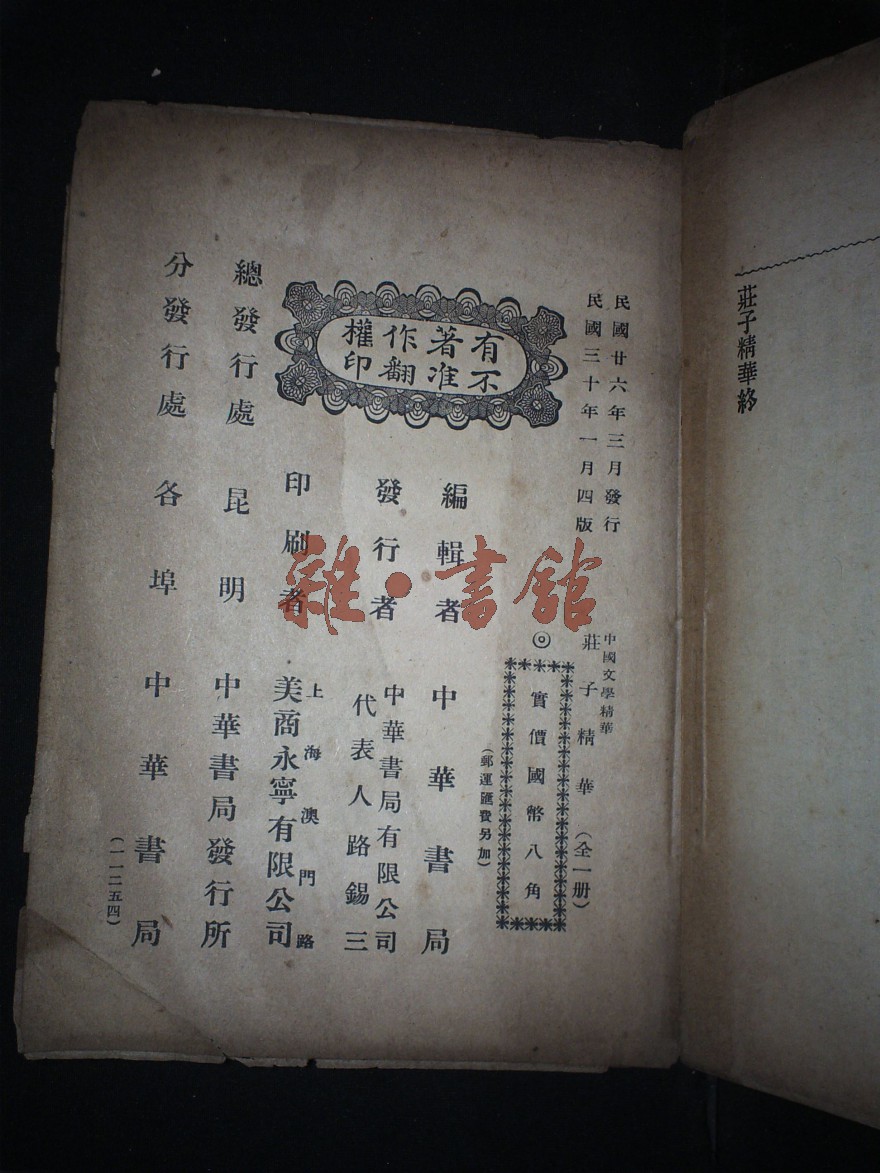 莊子精華終
民國廿六年三月發行
民國三十年一月四版
中國文學精華
莊子精華(全一册)
◎
實價國幣八角
(郵運匯費另加)
有著作權
不准翻印
編輯者 中華書局
發行者 中華書局有限公司
代表人路錫三
印刷者 上海澳門路
美商永寧有限公司
總發行處 昆明 中華書局發行所
分發行處 各埠 中華書局
(一一二五四)
雜·書館